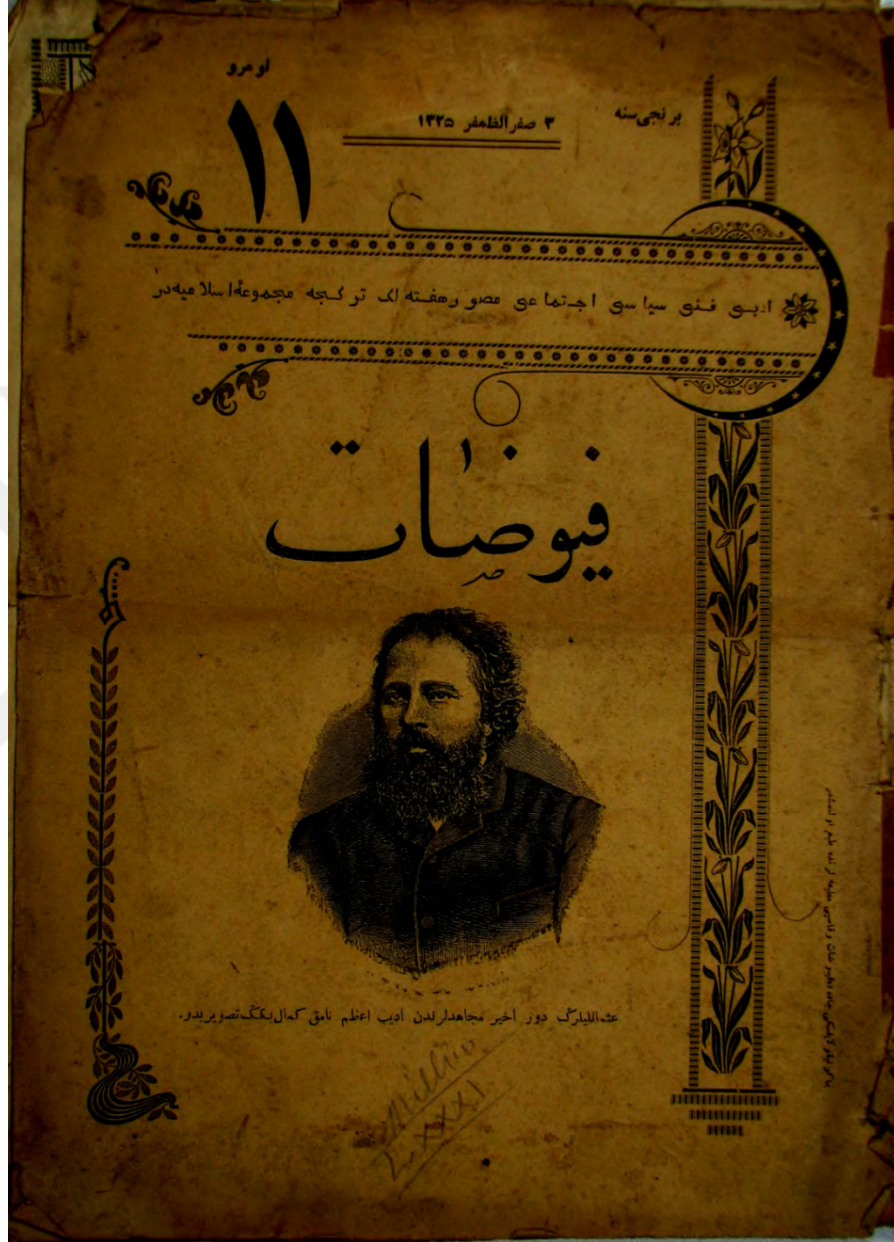 برنجی سنه
٣ صفر الظفر ١٣٢٥
نومرو
١١
ادبی فنی سیاسی اجتماعی مصور هفته لك تركجه مجموعهٔ اسلامیه در
فیوضات
عثمانلیلرڭ دور اخیر مجاهدلرندن ادیب اعظم نامق كمال بكڭ تصویریدر.
LXXXI